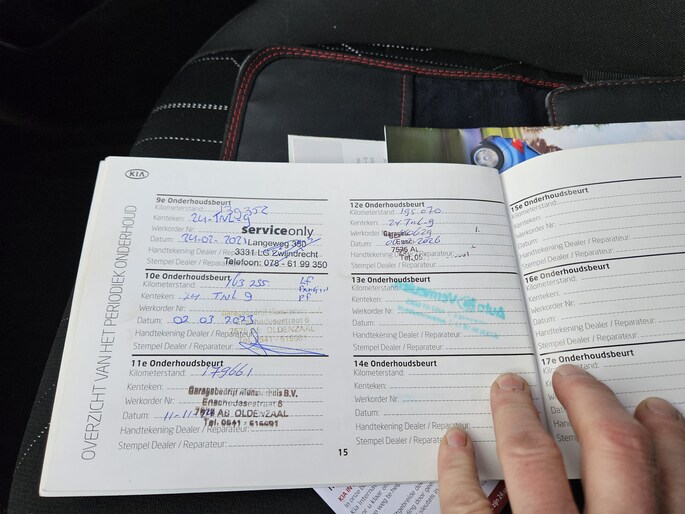 KIA
OVERZICHT VAN HET PERIODIEK ONDERHOUD
9e Onderhoudsbeurt
Kilometerstand: 130352
Kenteken: 24-TNL-9
Werkorder Nr: serviceonly
Datum: 24-02-2021 Langeweg 350
Handtekening Dealer / 3331 LG Zwijndrecht
Stempel Dealer / Telefoon: 078 - 61 99 350
10e Onderhoudsbeurt
Kilometerstand: 163 255
Kenteken: 24 TNL 9
Werkorder Nr:
Datum: 02 03 2023
Handtekening Dealer / OLDENZAAL
Stempel Dealer / Reparateur:
11e Onderhoudsbeurt
Kilometerstand: 179661
Kenteken: Garagebedrijf B.V.
Werkorder Nr. Enschedesestraat 8
Datum: 11-11- 7575 AB OLDENZAAL
Handtekening Dealer / Tel. 0541 - 515691
Stempel Dealer / Reparateur:
12e Onderhoudsbeurt
Kilometerstand: 195 070
Kenteken: 24 TNL-9
Werkorder
Datum: 2026
Handtekening Dealer
Stempel Dealer / Tel. 05
13e Onderhoudsbeurt
Kilometerstand
Kenteken:
Werkorder Nr:
Datum:
Handtekening Dealer / Reparateur:
Stempel Dealer / Reparateur:
14e Onderhoudsbeurt
Kilometerstand:
Kenteken:
Werkorder Nr.
Datum:
Handtekening Dealer / Reparateur
Stempel Dealer /
15
15e Onderhoudsbeurt
Kilometerstand:
Kenteken:
Werkorder Nr:
Datum:
Handtekening Dealer / Reparateur:
Stempel Dealer / Reparateur:
16e Onderhoudsbeurt
Kilometerstand:
Kenteken:
Werkorder Nr:
Datum:
Handtekening Dealer / Reparateur:
Stempel Dealer / Reparateur:
17e Onderhoudsbeurt
Kilometerstand:
Kenteken: